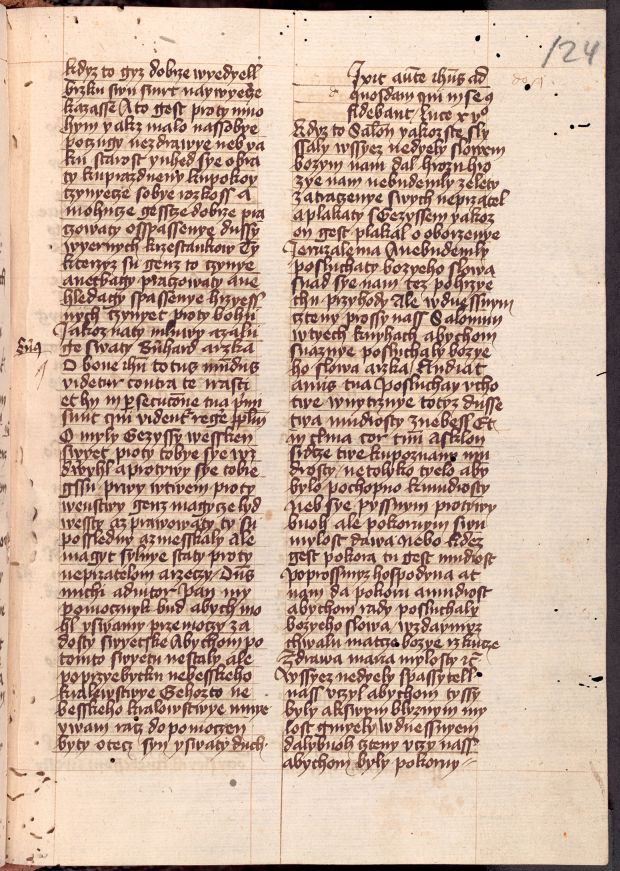 124
kdyz to gyz dobrze wyedyell
brzku swu smrt naywyecze
kazasse A to gest proty mno
hym yakz malo nassobye
poczugy nezdrawye neb ya
ku starost ynhed sye obra
ty kuprazdneny kupokoy
czynyecze sobye rozkoss A
mohucze gesscze dobrze pra
czowaty osspassenye dussy
wyernych krzestankow Ty
kteryz su genz to czynye
anechagy praczowaty ane
hledagy spassenye blizness
nych czynyet proty bohu
Jakoz naty mluwy czalu
ge swaty Bnhard arzka
O bone ihu totus mundus
videtur contra te
et hy in persecutione tua pmi
sunt qui vident regere pplm
O myly Gezyssy wessken
swyet proty tobye sye wz
dwyhl aprotywy sye tobie
gssu prwy wtwem proty
wenstwy genz magycze lyd
westy az prawowaty ty su
possledny azmesskaly Ale
magyt sylnye staty proty
neprzatelom arzeczy Dns
michi adiutor Pan my
pomocznyk bud abych mo
hl yswany przemoczy za
dosty swyetske Abychom po
tomto swyetu nestaly ale
poprzyebytku nebesskeho
kralowstwye Gehozto ne
besskeho kralowstwye mnye
ywam racz dopomoczen
byty otecz syn yswaty duch
Dixit aute ihus ad
quosdam qui in se
fidebant luce xyo
Kdyz to Salon yakozste sly
ssaly wssyez nedyely slowem
bozym nam dal hrozu hro
zye nam nebudemly zelety
zatraczenye swych neprzatel
aplakaty sGezyssem yakoz
on gest plakal oboorzenye
Jeruzalema Anebudemly
poslúchaty bozyeho slowa
snad sye nam tez pohrzye
chu przyhody Ale wdnessnym
czteny prossy nass Salomun
wtyech knyhach abychom
snaznye poslychaly bozye
ho slowa arzka Audiat
auris tua Posluchay vcho
twe wnytrznye totyz dusse
twa mudrosty znebess Et
inclina cor tuu
sidze twe kupoznanu mu
drosty netolyko tyelo aby
bylo pochopno kmudrosty
Neb sye pyssnym protywy
buoh ale pokornym swu
mylost dawa Nebo kdez
gest pokora tu gest mudrost
Poprossmyz hospodyna at
nam da pokoru amudrost
abychom rady posluchaly
bozyeho slowa wzdaymyz
chwalu matcze bozye rzkucze
Zdrawa maria mylosty zc
Wssyez nedyely spassytell
nass vczyl abychom tyssy
byly akswym blyznym my
lost gmyely wdnessnyem
dalybuoh cztenu vczy nass
abychom byly pokorny